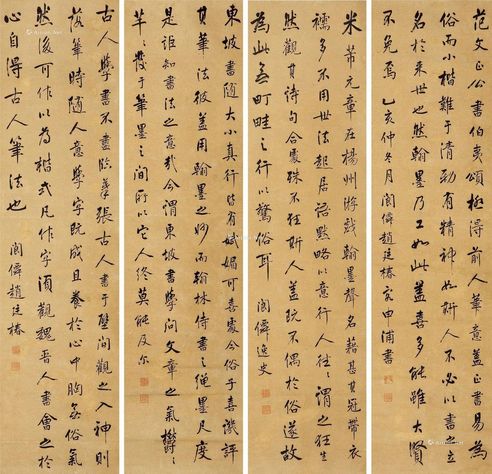 范文正公書伯夷頌極得前人筆意蓋正書易為
俗而小楷難于清勁有精神如斯人不必以書之立
名於来世也然翰墨乃工如此蓋喜多能雖大賢
不免焉 乙亥仲冬月 閬僊趙廷椿客申浦書
米芾元章在楊州游戲翰墨聲名藉甚其冠帶衣
襦多不用世法起居語默略以意行人往〻謂之狂生
然觀其詩句合處殊不狂斯人蓋既不偶於俗遂故
為此無町畦之行以驚俗耳 閬僊逸史
東坡書隨大小真行皆有嫵媚可喜處今俗子喜譏評
其筆法彼蓋用翰墨之妙而翰林侍書之繩墨尺度
是詎知書法之意哉今謂東坡書學問文章之氣欝〻
芊〻發于筆墨之間所以它人終莫能及尔
古人學書不盡臨摹張古人書于壁間觀之入神則
落筆時隨人意學字既成且養於心中胸無俗氣
然後可作以為楷式凡作字須觀魏晉人書會之於
心自得古人筆法也 閬僊趙廷椿